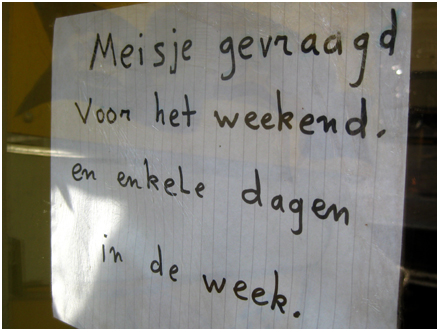 Meisje gevraagd
voor het weekend.
en enkele dagen
in de week.